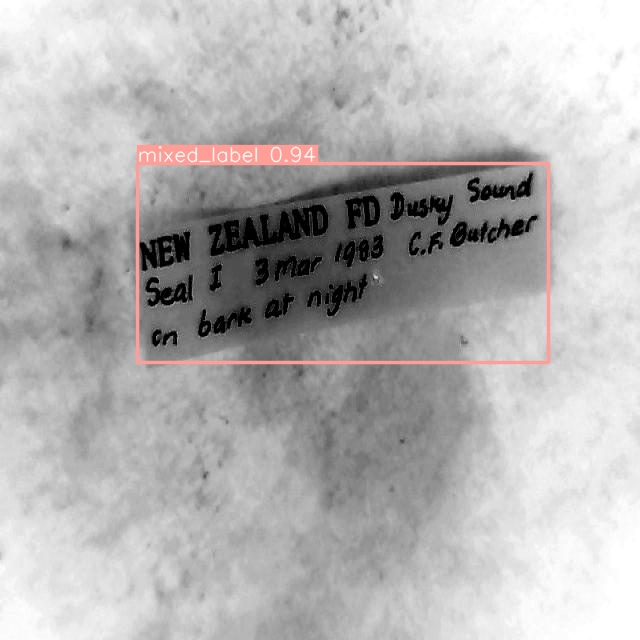 mixed_label 0.94
NEW ZEALAND FD Dusky Sound
Seal I 3 Mar 1983 C.F. Butcher
on bark at night